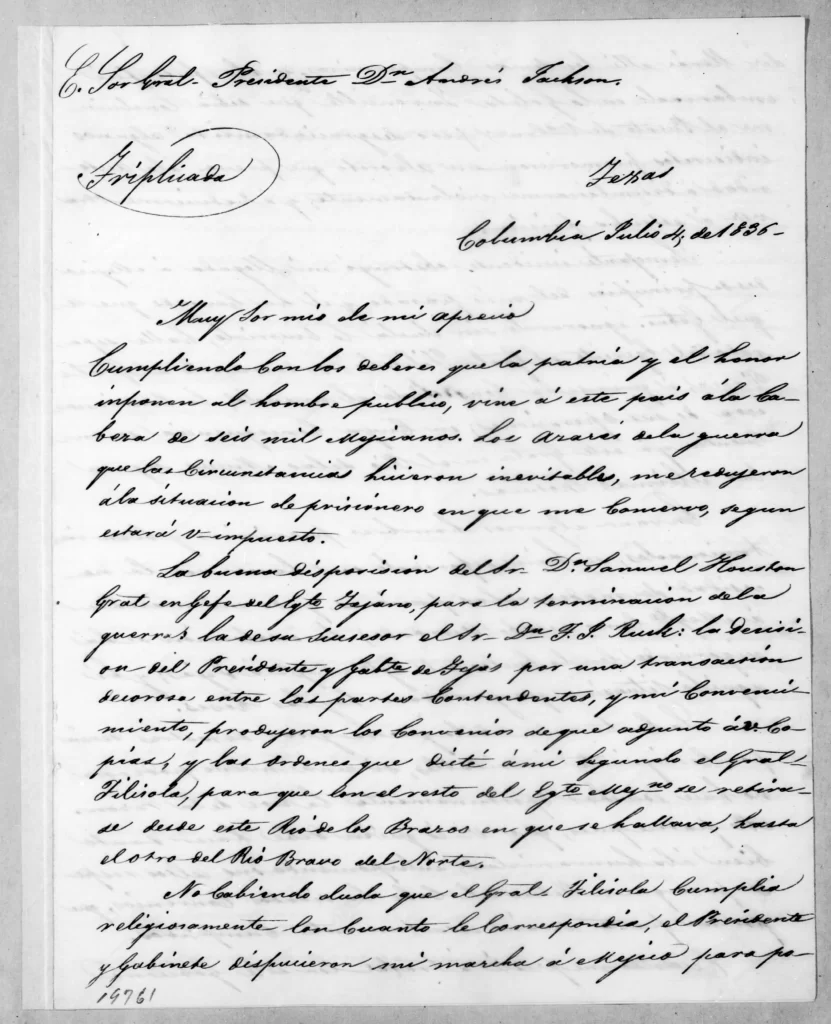 E. Sor Gral. Presidente Dn Andrés Jackson.
Triplicada
Texas
Columbia Julio 4, de 1836-
Muy Sor mio de mi aprecio
Cumpliendo con los deberes que la patria y el honor
inponen al hombre publico, vine á este pais á la ca-
beza de seis mil Mejicanos. Los azares de la guerra
que las circunstancias hicieron inevitables, me redujeron
á la situacion de prisionero en que me conservo, segun
estará V- impuesto.
La buena disposision del Sr Dn Samuel Houston
Gral en Gefe del Egto Tejano, para la terminacion de la
guerra: la de su susesor el Sr Dn T. J. Rusk: la decisi-
on del Presidente y Gabte de Tejas por una transacsion
decorosa entre las partes contendentes, y mi convenci-
miento, produjeron los convenios de que adjunto á V. co-
pias, y las ordenes que dicté á mi segundo el Gral
Filisola, para que con el resto del Egto Mejno se retira-
se desde este Rio de los Brazos en que se hallava, hasta
el otro del Rio Bravo del Norte.
No cabiendo duda que el Gral. Filisola cumpliria
religiosamente con cuanto le correspondia, el Presidente
y Gabinete dispucieron mi marcha á Mejico para po-
19761